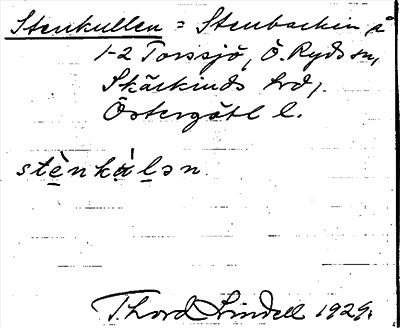 Stenkullen = Stenbacken å
1-2 Torssjö, Ö. Ryds sn,
Skärkinds hrd,
Östergötl l.
stènkàlən
Thord Lindell 1929.